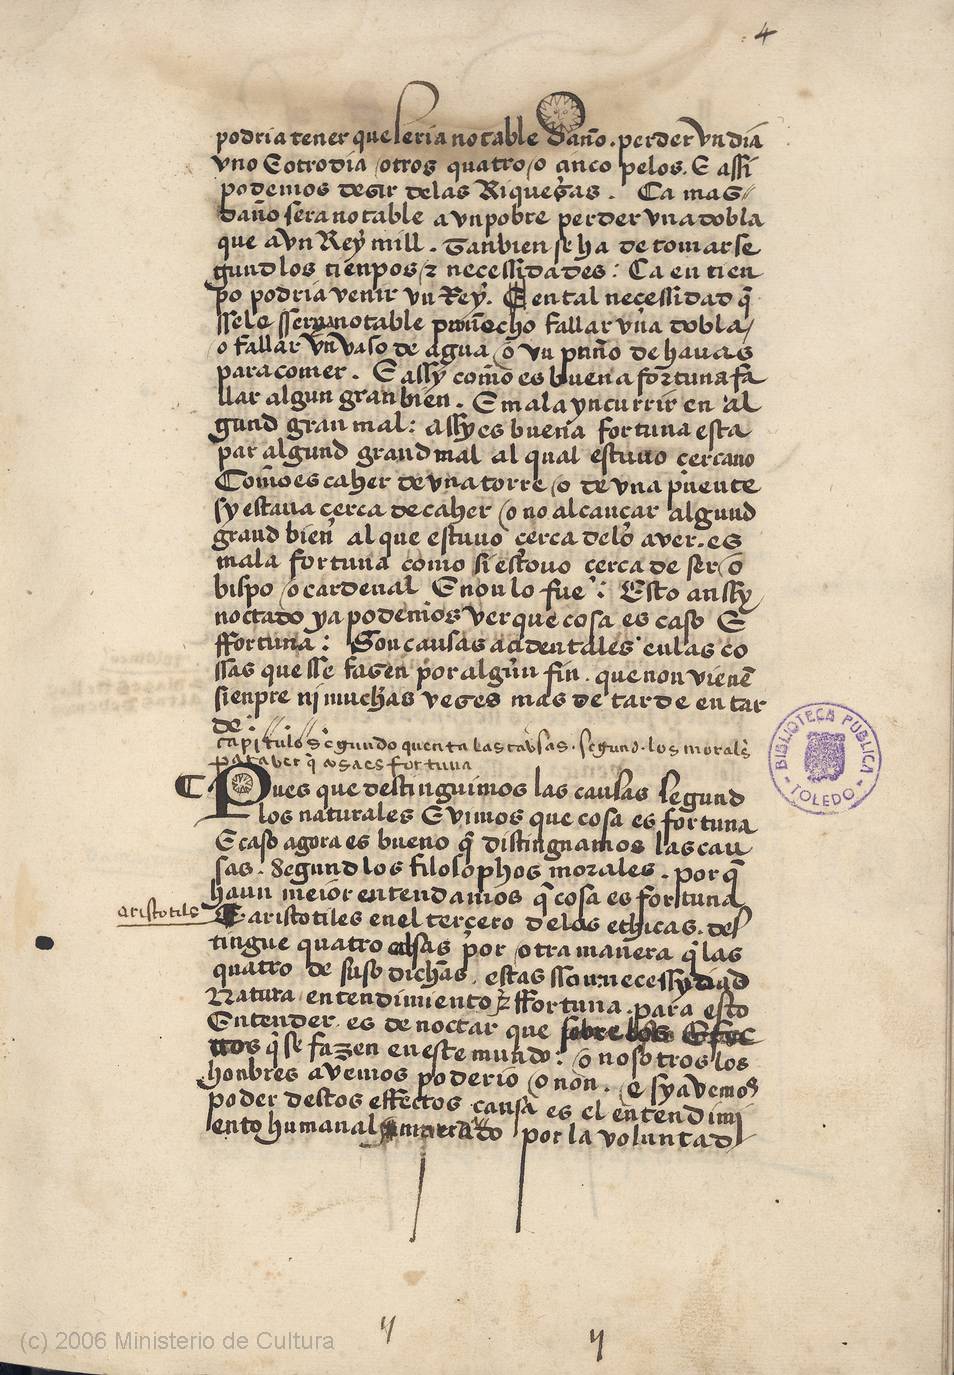 4
podria tener que seria notable daño . perder vn dia
vno E otro dia / otros quatro / o cinco pelos . E assi
podemos desir de las Riquesas . Ca mas
daño sera notable a vn pobre perder vna dobla
que a vn Rey mill . Tanbien se ha de tomar se
gund los tienpos / z necessidades : Ca en tien
po podria venir vn Rey . E en tal necessidad q̃
ssele notable fallar vna dobla /
o fallar vn vaso de agua / o vn puño de hauas
para comer . E assy como es buena fortuna fa
llar algun gran bien . E mala yncurrir en al
gund gran mal : assy es buena fortuna esca
par algund grand mal al qual estuuo cercano
Como es caher de vna torre / o de vna puente
sy estaua cerca de caher / o no alcançar algund
grand bien al que estuuo cerca delo aver . es
mala fortuna como si estouo cerca de ser / o
bispo / o cardenal E non lo fue : Esto anssy
noctado ya podemos ver que cosa es caso E
ffortuna : Son causas acidentales en las co
ssas que sse fasen por algun fin . que non vienen
sienpre nj muchas veses mas de tarde en tar
de :
capitulo segundo quenta las causas . segund . los morales
para ver q̃ cosa es fortuna
Pues que destinguimos las causas segund
los naturales E vimos que cosa es fortuna
E caso agora es bueno q̃ distingnamos las cau
sas . segund los filosophos morales . por q̃
haun meior entendamos q̃ cosa es fortuna
aristotils
E aristotiles en el tercero delas ethicas . des
tingue quatro por otra manera q̃ las
quatro de suso dichas . estas sson necessydad
Natura / entendimiento z ffortuna . para esto
Entender . es de noctar que sobre los Efec
ttos q̃ se fazen en este mundo : o nosotros los
honbres avemos poderio / o non . E sy avemos
poder destos effectos causa es el entendimi
ento humanal por la voluntad
BIBLIOTECA PUBLICA
- TOLEDO -
(c) 2006 Ministerio de Cultura